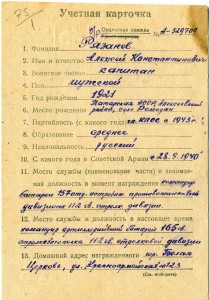 75
Учетная карточка
№ Орденская книжка А-929704
1. Фамилия Рязанов
2. Имя и отчество Алексей Константинович
3. Воинское звание капитан
4. Пол мужской
5. Год рождения 1921
Татарская АССР, Алексеевский
район, село Ромодан
7. Партийность (с какого года) чл. КПСС с 1943 г.
8. Образование среднее
9. Национальность русский
10. С какого года в Советской Армии с 28.9.1940
11. Место службы (наименование части) и занимаемая
должность в момент награждения командир
батареи 157отд. истребит. противотанкового
дивизиона 112 гв. стрелк. дивизии.
12. Место службы и должность в настоящее время
командир артиллерийской батареи
стрелкового полка 112 гв. стрелковой дивизии
13. Домашний адрес награжденного гор. Белая
Церковь, ул. Красноармейская
(См. на обороте)